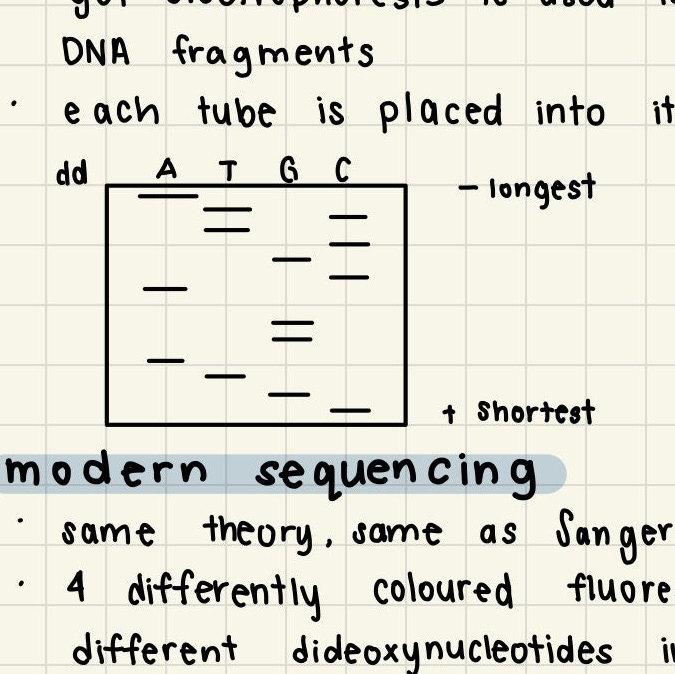 DNA fragments
· each tube is placed into
dd A T G C
- longest
+ shortest
modern sequencing
· same theory, same as Sanger
· 4 differently coloured
different dideoxynucleotides